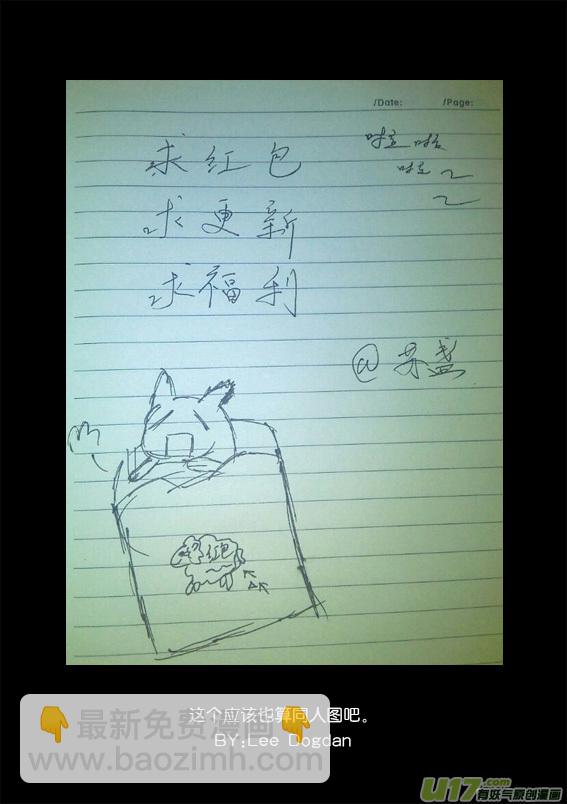 /Date: /Page:
求红包
啦啦
啦~
~
求更新
求福利
@苏盏
红包
这个应该也算同人图吧。
BY:Lee Dogdan
最新免费漫画
www.baozimh.com
U17.com
有妖气原创漫画